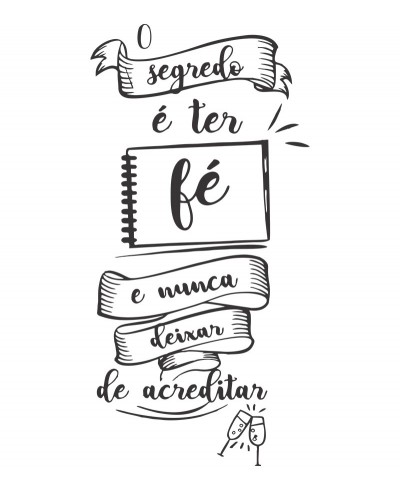 O
segredo
é ter
fé
e nunca
deixar
de acreditar